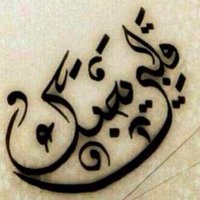 قلبي يحبك